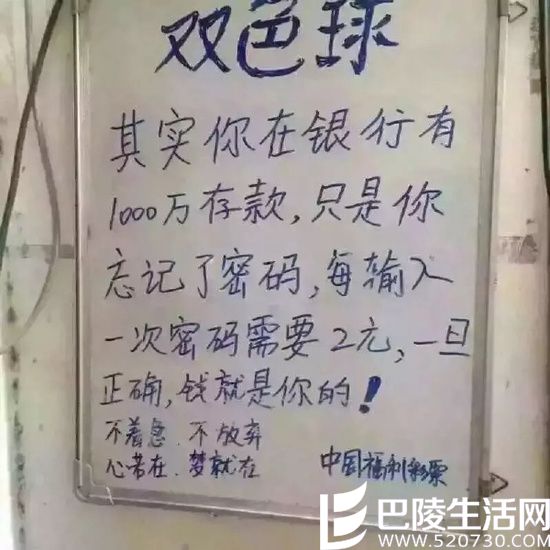 双色球
其实你在银行有
1000万存款,只是你
忘记了密码,每输入
一次密码需要2元,一旦
正确,钱就是你的!
不着急.不放弃
心若在.梦就在 中国福利彩票
巴陵生活网
www.520730.com